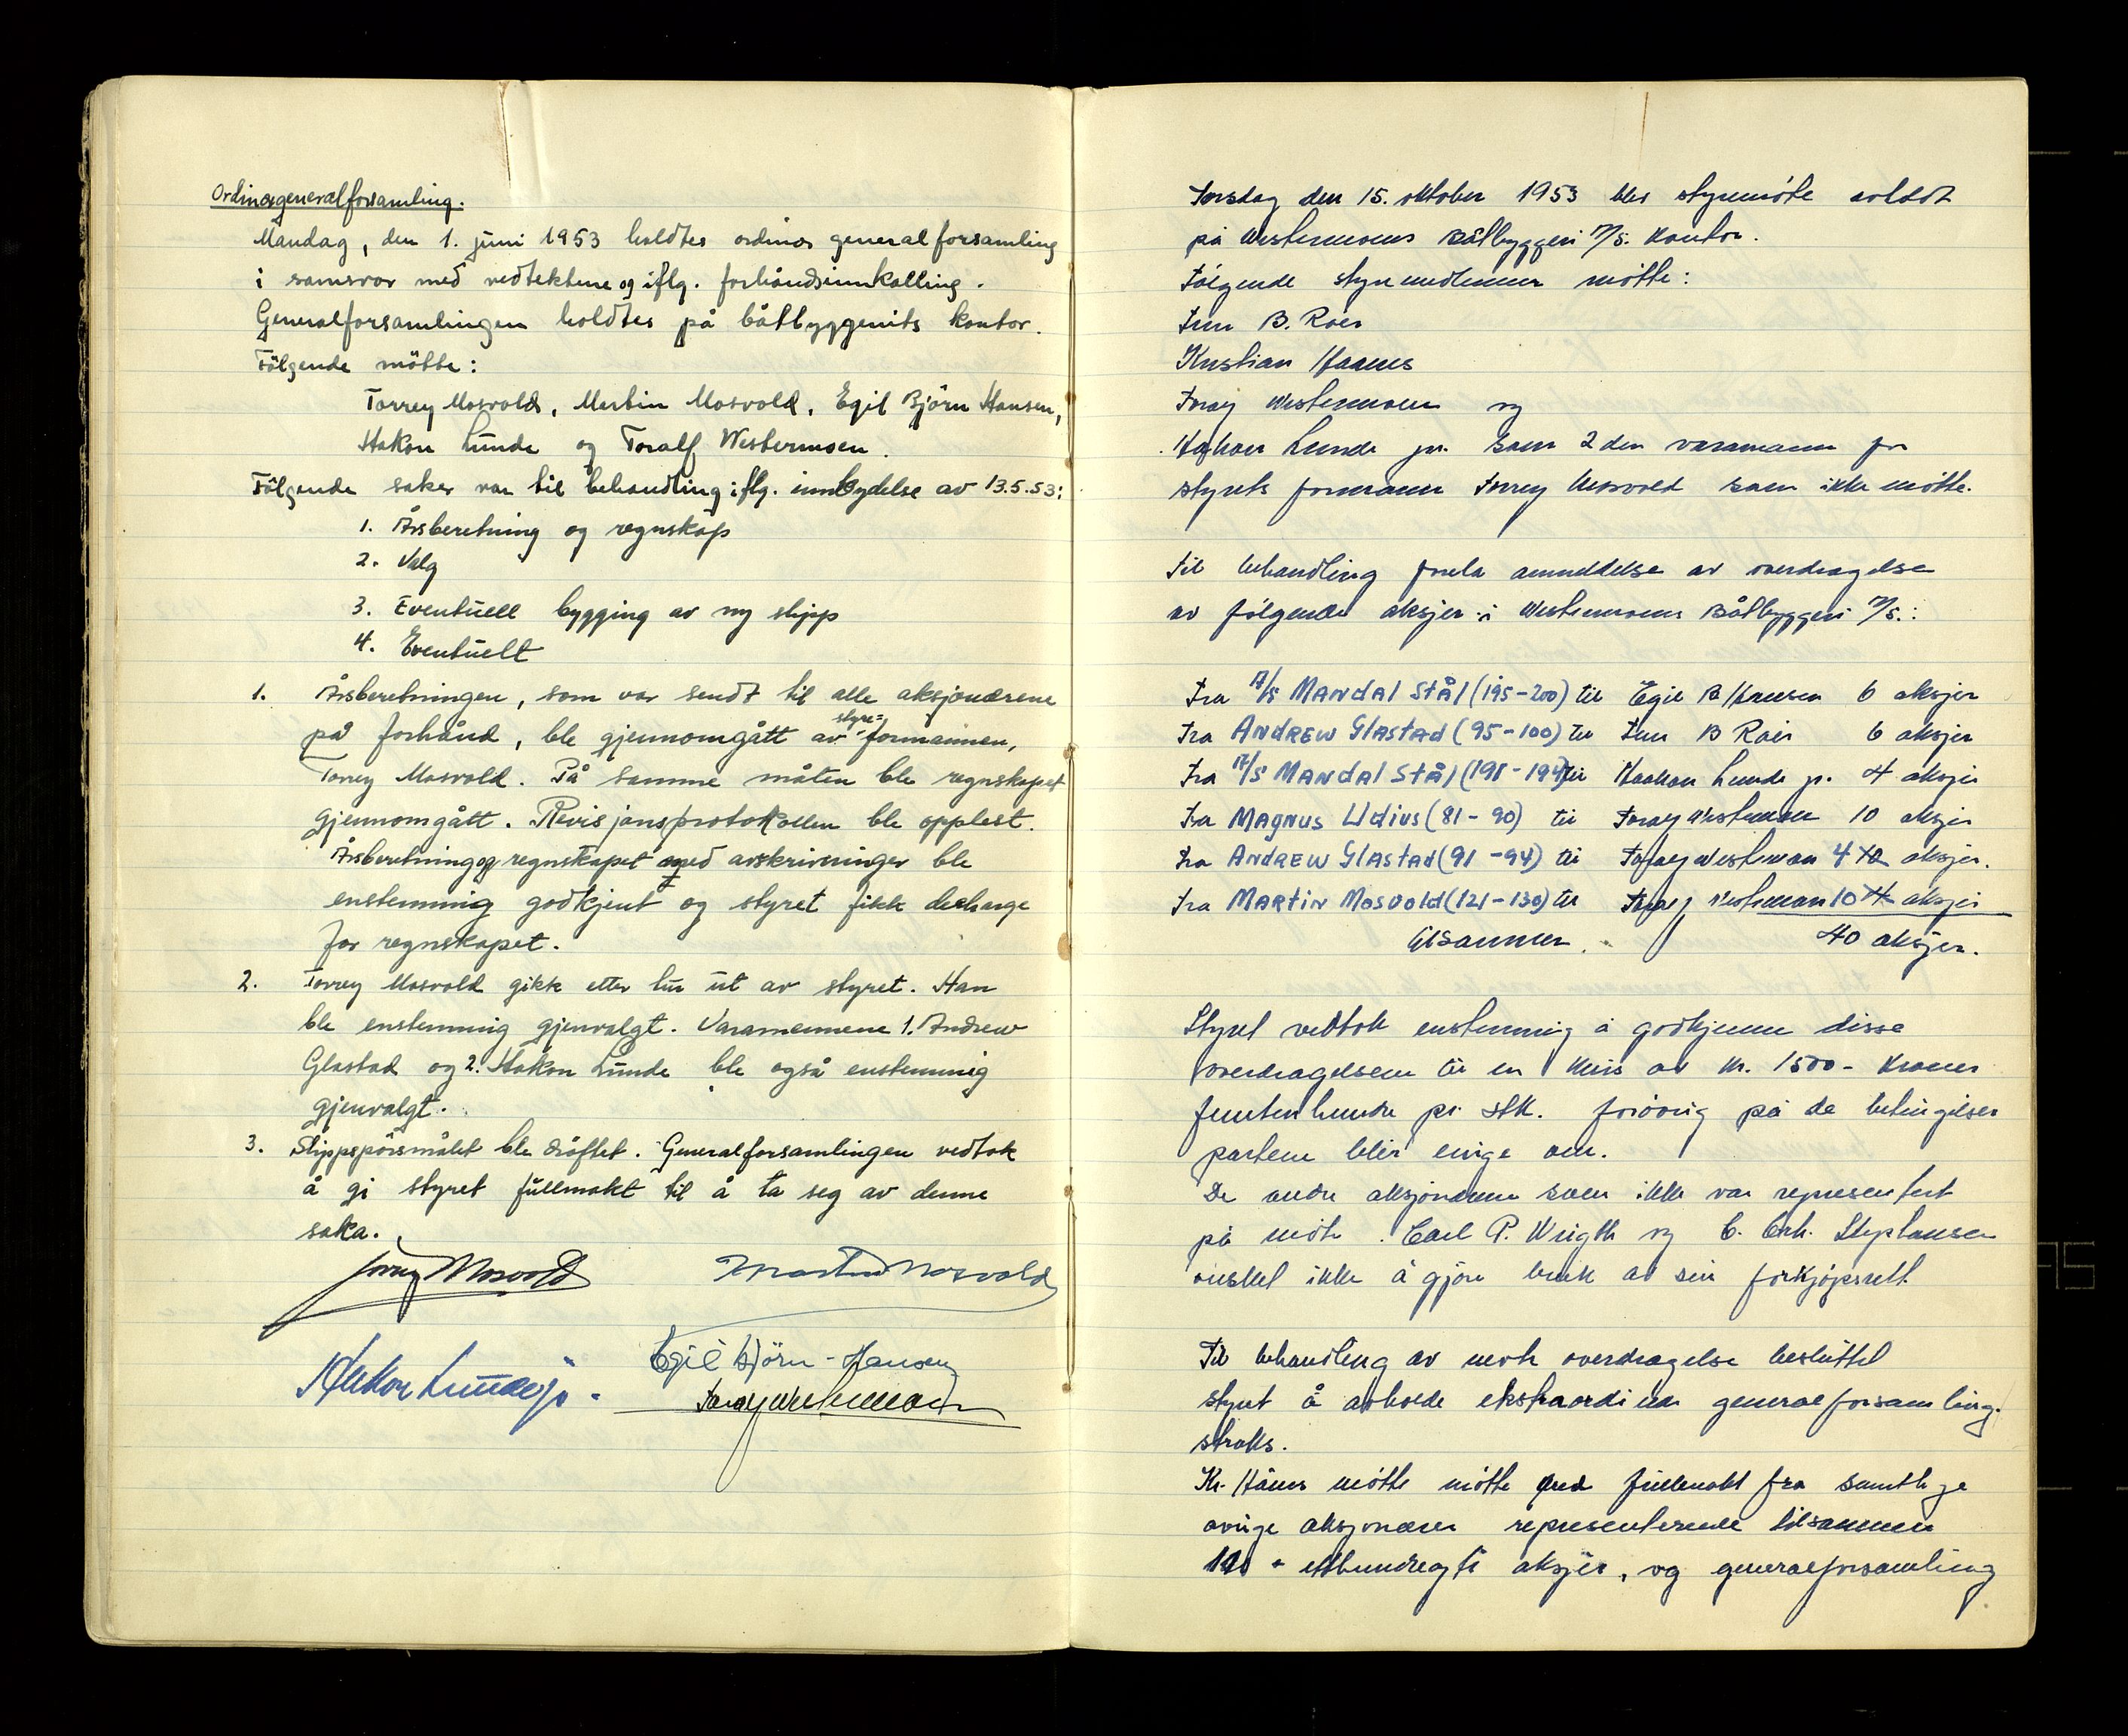 Ordinærgeneralforsamling.
Mandag, den 1. juni 1953 holdtes ordinær generalforsamling
i samsvar med vedtektene og iflg. forhåndsinnkalling.
Generalforsamlingen holdtes på båtbyggeriets kontor.
Følgende møtte:
Torrey Mosvold, Martin Mosvold, Egil Björn Hansen,
Hakon Lunde og Toralf Westermoen.
Følgende saker var til behandling iflg. innbydelse av 13.5.53:
1. Årsberetning og regnskap
2. Valg
3. Eventuell bygging av ny slipp
4. Eventuelt
1. Årsberetningen, som var sendt til alle aksjonærene
på forhånd, ble gjennomgått av styre=formannen,
Torrey Mosvold. På samme måten ble regnskapet
gjennomgått. Revisjonsprotokollen ble opplest.
Årsberetning og regnskapet med avskrivninger ble
enstemmig godkjent og styret fikk decharge
for regnskapet.
2. Torrey Mosvold gikk etter tur ut av styret. Han
ble enstemmig gjenvalgt. Varamennene 1. Andrew
Glastad og 2. Hakon Lunde ble også enstemmig
gjenvalgt.
3. Slippspörsmålet ble dröftet. Generalforsamlingen vedtok
å gi styret fullmakt til å ta seg av denne
saka.
Torrey Mosvold Martin Mosvold
Hakon Lunde jr. Egil Björn-Hansen
Toralf Westermoen
Torsdag den 15. oktober 1953 blev styremöte avholdt
på Westermoens Båtbyggeri A/S. Kontor.
Følgende styremedlemmer møtte:
B. Roer
Kristian Haanes
Toralf Westermoen og
Haakon Lunde jr. som 2den varamann for
styrets formann Torrey Mosvold som ikke møtte.
Til behandling forela anmeldelse av overdragelse
av følgende aksjer i Westermoens Båtbyggeri A/S.:
Fra A/S Mandal Stål (195-200) til Egil B Hansen 6 aksjer
Fra Andrew Glastad (95-100) til B Roer 6 aksjer
Fra A/S Mandal Stål (191-194) til Haakon Lunde jr. 4 aksjer
Fra Magnus Udius (81-90) til Toralf Westermoen 10 aksjer
Fra Andrew Glastad (91-94) til Toralf Westermoen 4 10 aksjer.
Fra Martin Mosvold (121-130) til Toralf Westermoen 10 4 aksjer
tilsammen 40 aksjer.
Styret vedtok enstemmig å godkjenne disse
overdragelsene til en kurs av kr. 1500- kroner
femtenhundre pr. stk. forøvrig på de betingelser
partene blir enige om.
De andre aksjonærene som ikke var representert
på møte. Carl P. Wrigth og C. Chr. Stephansen
ønsket ikke å gjøre bruk av sin forkjøpsrett.
Til behandling av nevnte overdragelse besluttet
styret å avholde ekstraordinær generalforsamling.
straks.
Kr. Håanes møtte møtte med fullmakt fra samtlige
øvrige aksjonærer representerende tilsammen
110 - etthundreogti aksjer, og generalforsamling